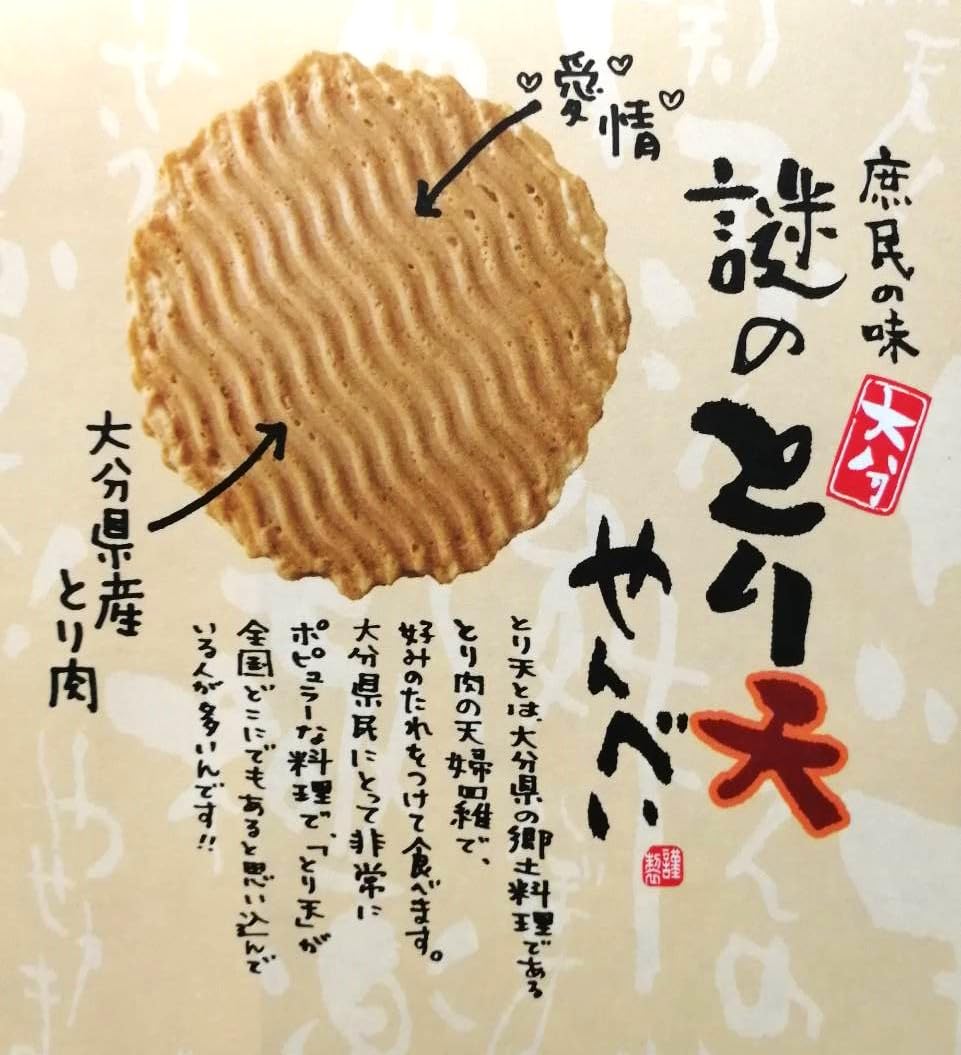 庶民の味
大分
謎の
とり天
せんべい
謹製
愛情
大分県産
とり肉
とり天とは、大分県の郷土料理である
とり肉の天婦羅で、
好みのたれをつけて食べます。
大分県民にとって非常に
ポピュラーな料理で、「とり天」が
全国どこにでもあると思い込んで
いる人が多いんです!!